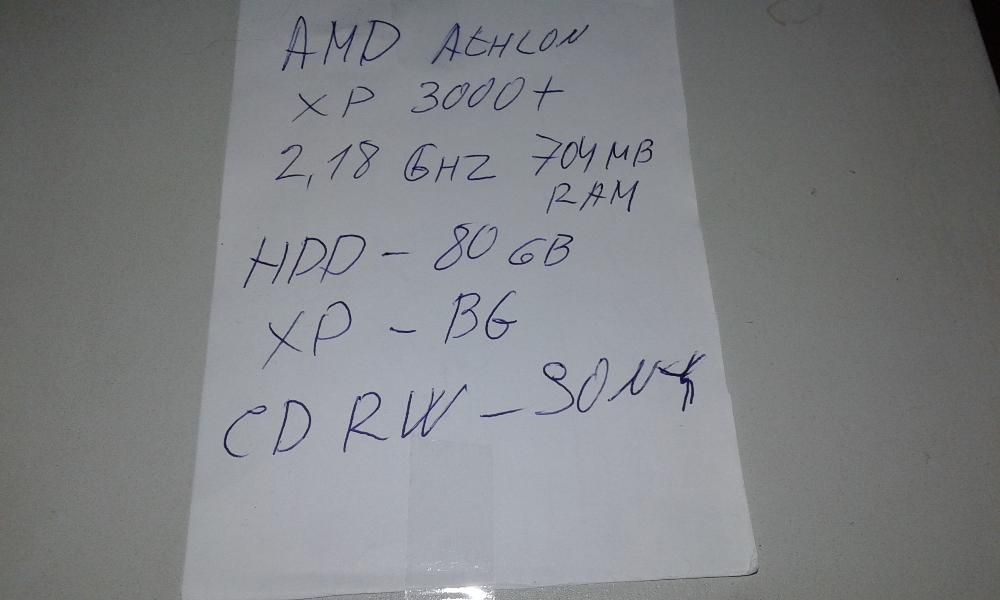 AMD AtHLON
XP 3000+
2,18 GHZ 704 MB
RAM
HDD - 80 GB
XP - BG
CD RW - SONY